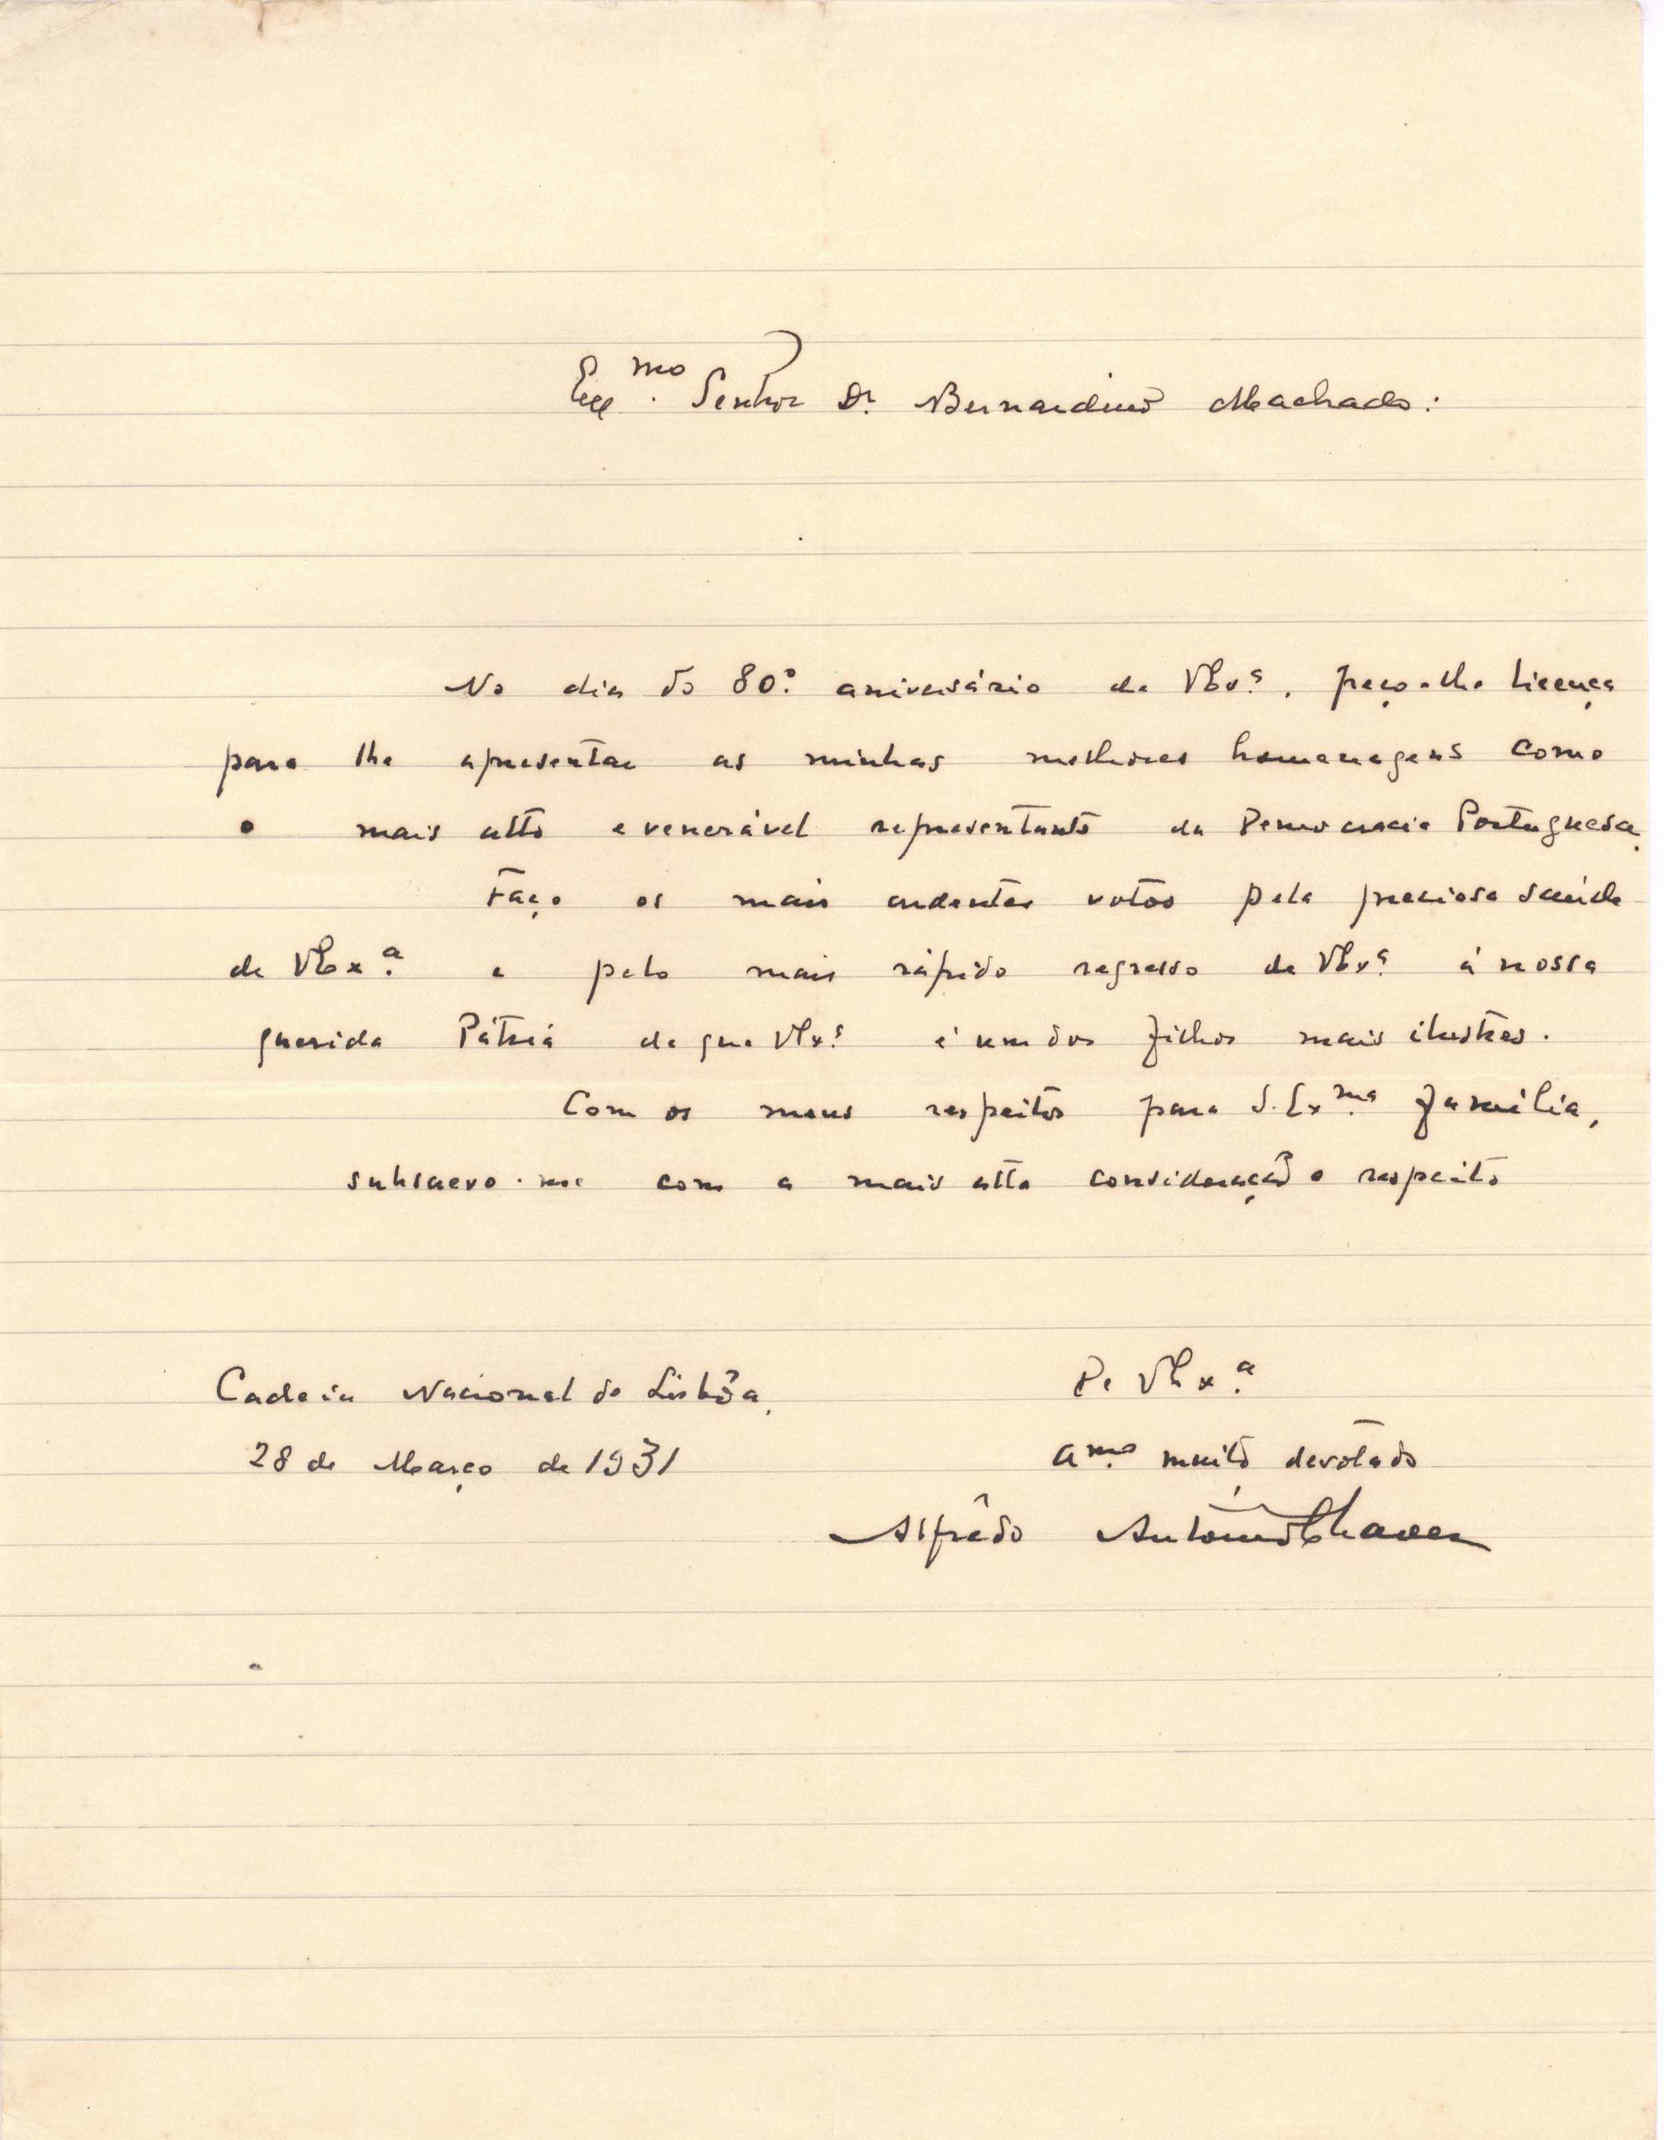 Exmo. Senhor Dr. Bernardino Machado:
No dia do 80.º aniversário de V. Ex.ª, peço-lhe licença
para lhe apresentar as minhas melhores homenagens como
o mais alto e venerável representante da Democracia Portuguesa.
Faço os mais ardentes votos pela preciosa saúde
de V. Ex.ª e pelo mais rápido regresso de V. Ex.ª á nossa
querida Pátria de que V. Ex.ª é um dos filhos mais ilustres.
Com os meus respeitos para S. Ex.ma família,
subscrevo-me com a mais alta consideração e respeito
De V. Ex.ª
Cadeia Nacional de Lisbôa,
28 de Março de 1931
am.o muito devotado
Alfrêdo António Chaves